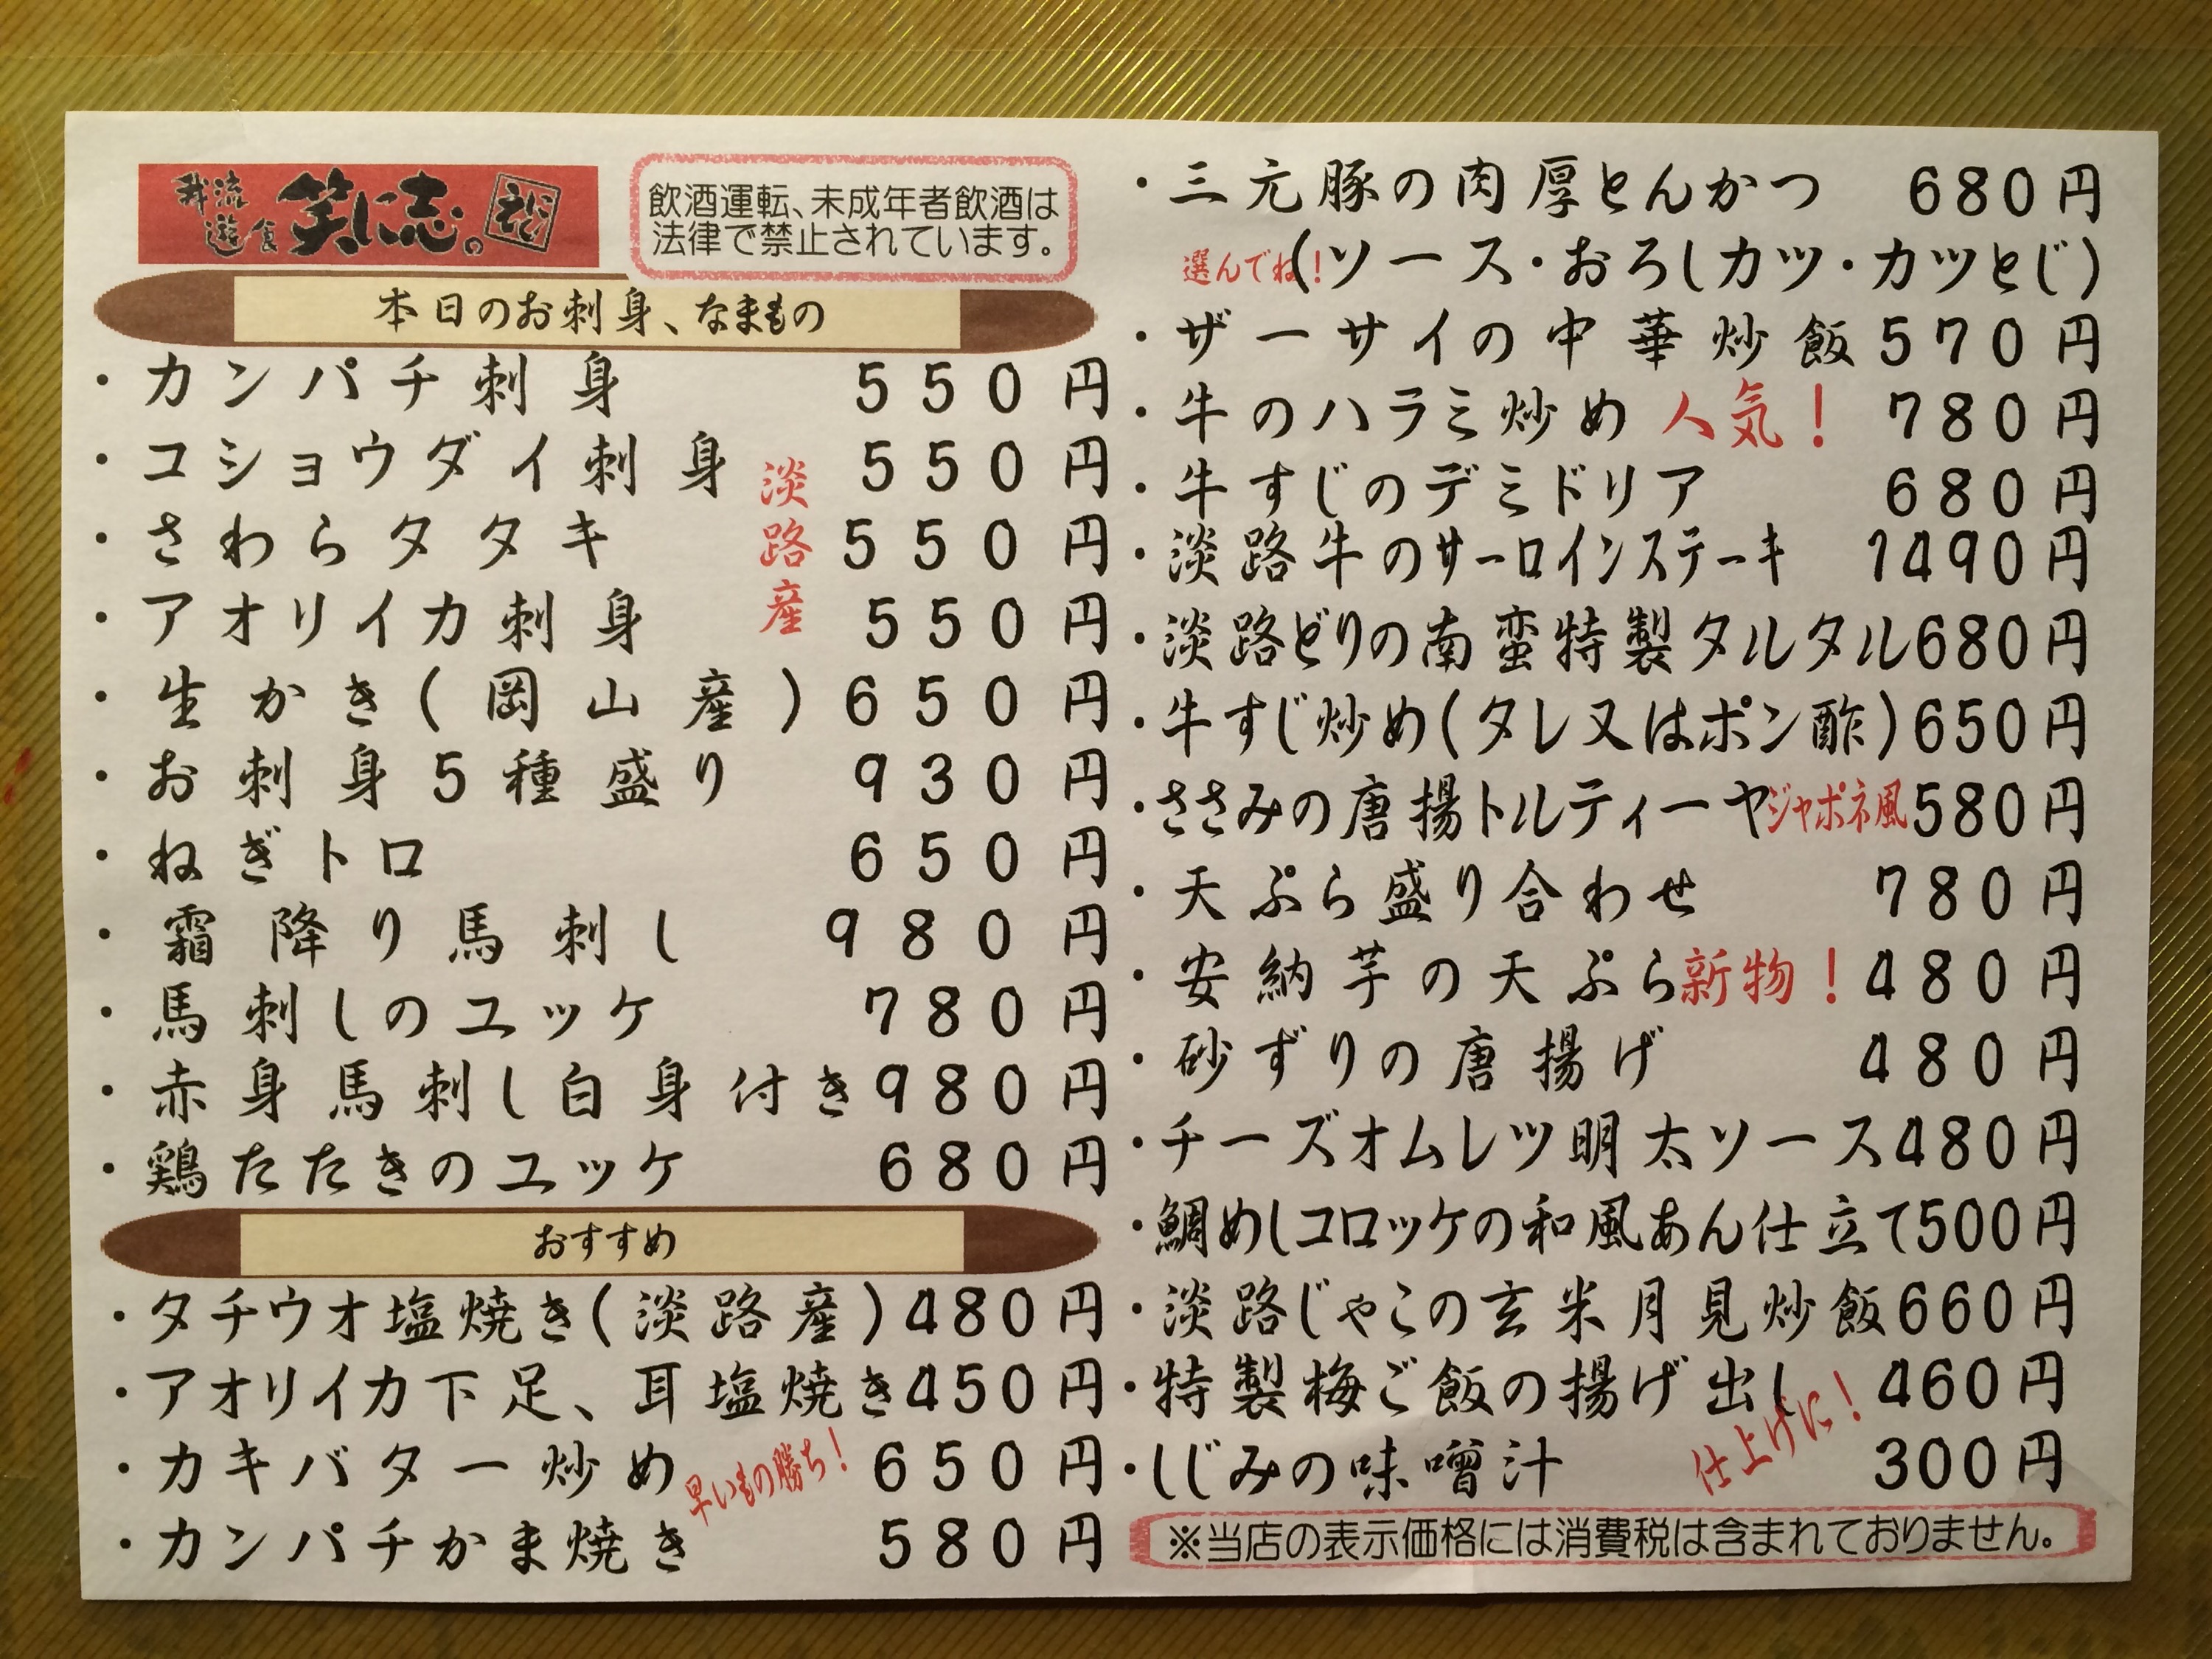 我流
遊食
笑に志。
飲酒運転、未成年者飲酒は
法律で禁止されています。
本日のお刺身、なまもの
・カンパチ刺身 550円
・コショウダイ刺身 550円
・さわらタタキ 550円
・アオリイカ刺身 550円
淡路産
・生かき(岡山産)650円
・お刺身5種盛り 930円
・ねぎトロ 650円
・霜降り馬刺し 980円
・馬刺しのユッケ 780円
・赤身馬刺し白身付き980円
・鶏たたきのユッケ 680円
おすすめ
・タチウオ塩焼き(淡路産)480円
・アオリイカ下足、耳塩焼き450円
・カキバター炒め 早いもの勝ち! 650円
・カンパチかま焼き 580円
・三元豚の肉厚とんかつ 680円
選んでね!(ソース・おろしカツ・カツとじ)
・ザーサイの中華炒飯570円
・牛のハラミ炒め 人気! 780円
・牛すじのデミドリア 680円
・淡路牛のサーロインステーキ 1490円
・淡路どりの南蛮特製タルタル680円
・牛すじ炒め(タレ又はポン酢)650円
・ささみの唐揚トルティーヤジャポネ風580円
・天ぷら盛り合わせ 780円
・安納芋の天ぷら新物!480円
・砂ずりの唐揚げ 480円
・チーズオムレツ明太ソース480円
・鯛めしコロッケの和風あん仕立て500円
・淡路じゃこの玄米月見炒飯660円
・特製梅ご飯の揚げ出し 460円
・しじみの味噌汁 仕上げに! 300円
※当店の表示価格には消費税は含まれておりません。